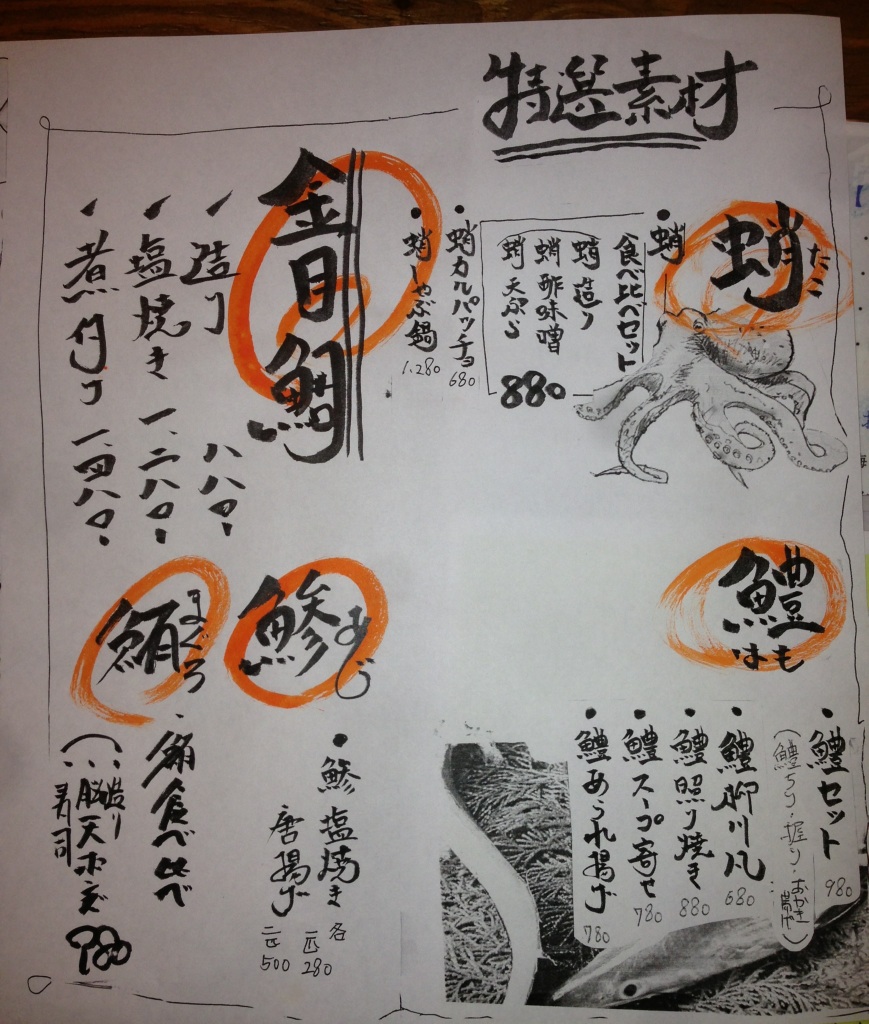 特選素材
蛸
たこ
・蛸
食べ比べセット
蛸造り
蛸酢味噌
蛸天ぷら
880
・蛸カルパッチョ
680
・蛸しゃぶ鍋
1.280
金目鯛
造り 八八〇
塩焼き 一、二八〇
煮付け 一、四八〇
鱧
はも
・鱧セット 980
(鱧ちり・握り・おかき揚げ)
・鱧柳川風 680
・鱧照り焼き 880
・鱧スープ寄せ 780
・鱧あられ揚げ 780
鰺
あじ
・鰺塩焼き 各
唐揚げ
一匹 280
二匹 500
鮪
まぐろ
・鮪食べ比べ
造り
脳天ポン酢
寿司
980